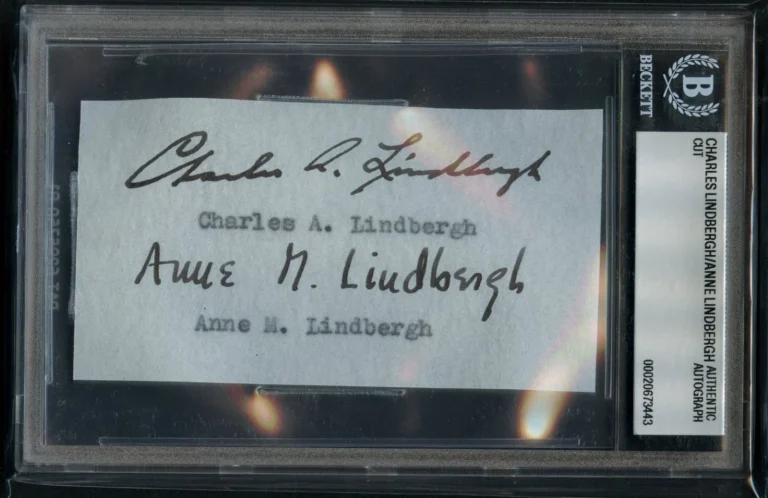 Charles A. Lindbergh
Charles A. Lindbergh
Anne M. Lindbergh
Anne M. Lindbergh
B
BECKETT
CHARLES LINDBERGH/ANNE LINDBERGH AUTHENTIC
CUT AUTOGRAPH
00020673443